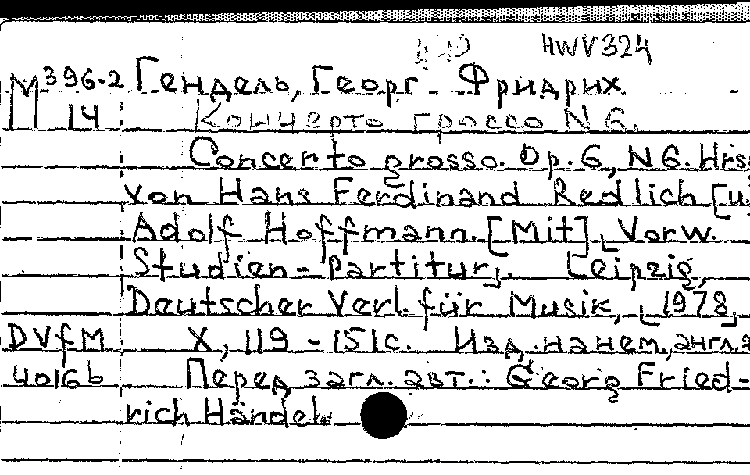 HWV 324
M 396-2 Гендель, Георг Фридрих.
14 Кончерто гроссо N 6.
Concerto grosso. Op. 6, N 6. Hrsg
von Hans Ferdinand Redlich [u.
Adolf Hoffmann. [Mit] Vorw.
Studien-Partitur. Leipzig,
Deutscher Verl. für Musik, 1978
DVfM X, 119-151 с. Изд. на нем., англ. я
4016b Перед загл. авт.: Georg Fried-
rich Händel.